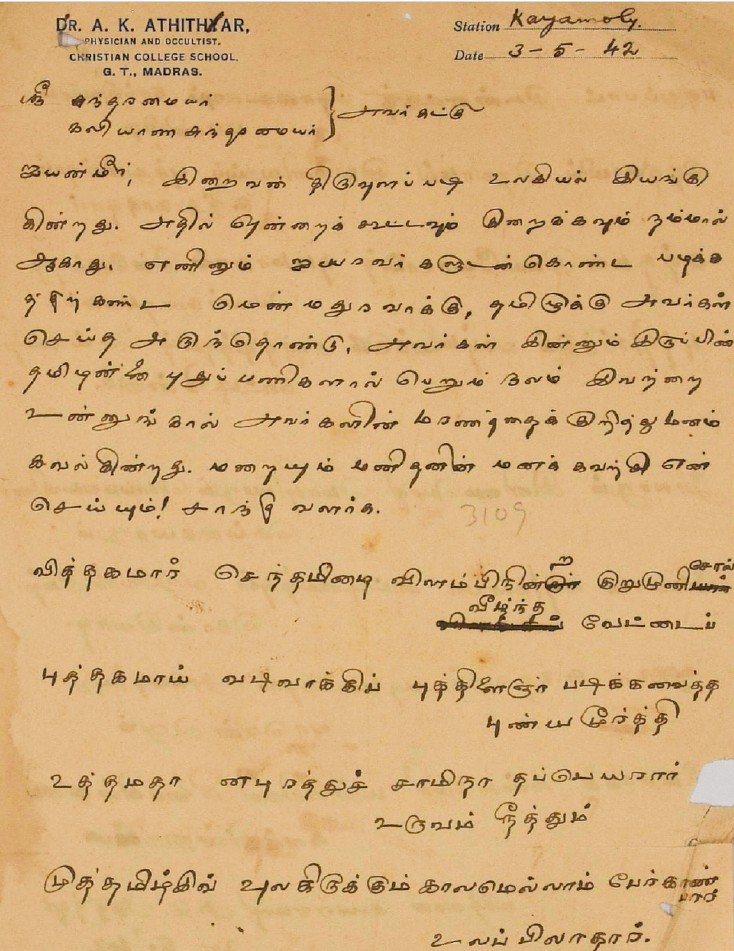 DR. A. K. ATHITHYAR,
PHYSICIAN AND OCCULTIST,
CHRISTIAN COLLEGE SCHOOL,
G. T., MADRAS.
Station Kayamoly.
Date 3-5-42
ஸ்ரீ சுந்தரமையர்
கலியாண சுந்தரமையர் } அவர்கட்கு
ஐயன்மீர், இறைவன் திருவுளப்படி உலகியல் இயங்கு
கின்றது. அதில் ஒன்றைக் கூட்டவும் குறைக்கவும் நம்மால்
ஆகாது. எனினும் ஐயரவர்களுடன் கொண்ட படிக்க
கண்ட மென் மதுரவாக்கு, தமிழுக்கு அவர்கள்
செய்த அருந்தொண்டு, அவர்கள் இன்னும் இருப்பின்
தமிழன்னை புதுப் பணிகளால் பெறும் நலம் இவற்றை
உன்னுங்கால் அவர்களின் மரணத்தைக் குறித்து மனம்
கவல்கின்றது. மறையும் மனிதனின் மனக் கவற்சி என்
செய்யும்! சாந்தி வளர்க.
3109
வித்தகமார் செந்தமிழை விளம்பிநின்ற குறுமுனி சொல்
வீழ்ந்த வேட்டைப்
புத்தகமாய் வடிவாக்கிப் புத்திளைஞர் படிக்கவைத்த
புண்யமூர்த்தி
உத்தமதா னபுரத்துச் சாமிநா தப்பெயரார்
உருவம் நீத்தும்
முத்தமிழ்இவ் வுலகிடுக்கும் காலமெல்லாம் பேர்காண்
பார்
உலப்பிலாதார்.